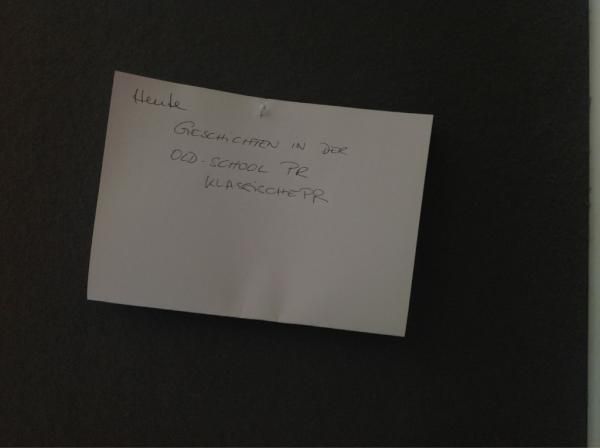 Heute
GESCHICHTEN IN DER
OLD-SCHOOL PR
KLASSISCHE PR